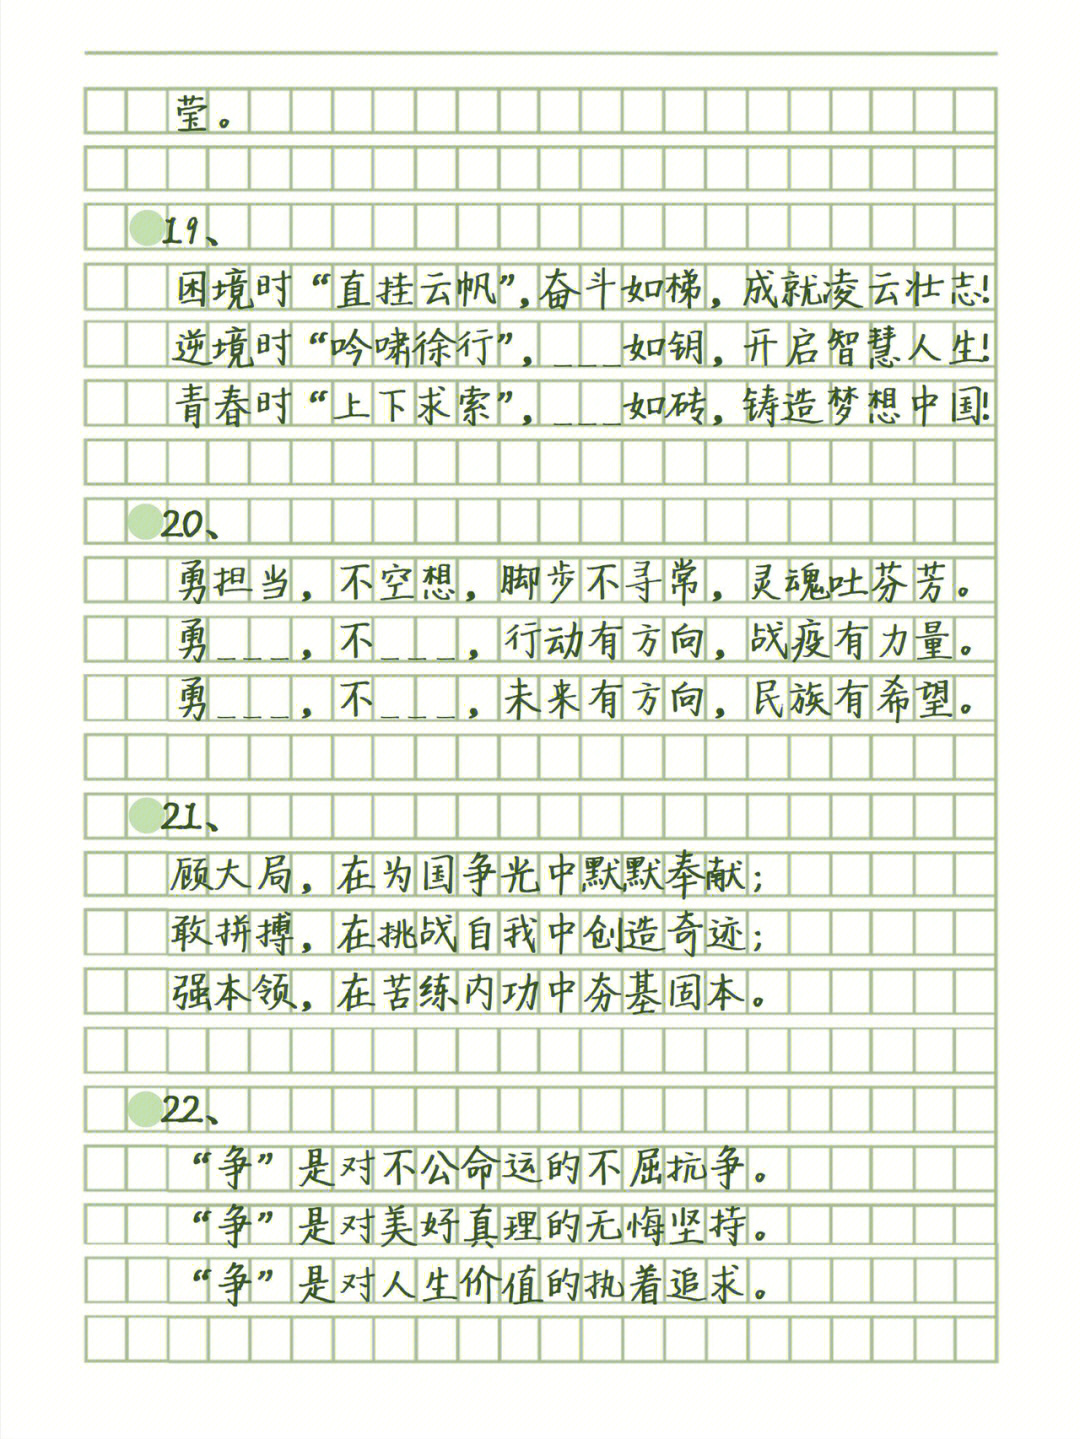 莹。
19、
困境时“直挂云帆”，奋斗如梯，成就凌云壮志！
逆境时“吟啸徐行”，___如钥，开启智慧人生！
青春时“上下求索”，___如砖，铸造梦想中国！
20、
勇担当，不空想，脚步不寻常，灵魂吐芬芳。
勇___，不___，行动有方向，战疫有力量。
勇___，不___，未来有方向，民族有希望。
21、
顾大局，在为国争光中默默奉献；
敢拼搏，在挑战自我中创造奇迹；
强本领，在苦练内功中夯基固本。
22、
“争”是对不公命运的不屈抗争。
“争”是对美好真理的无悔坚持。
“争”是对人生价值的执着追求。